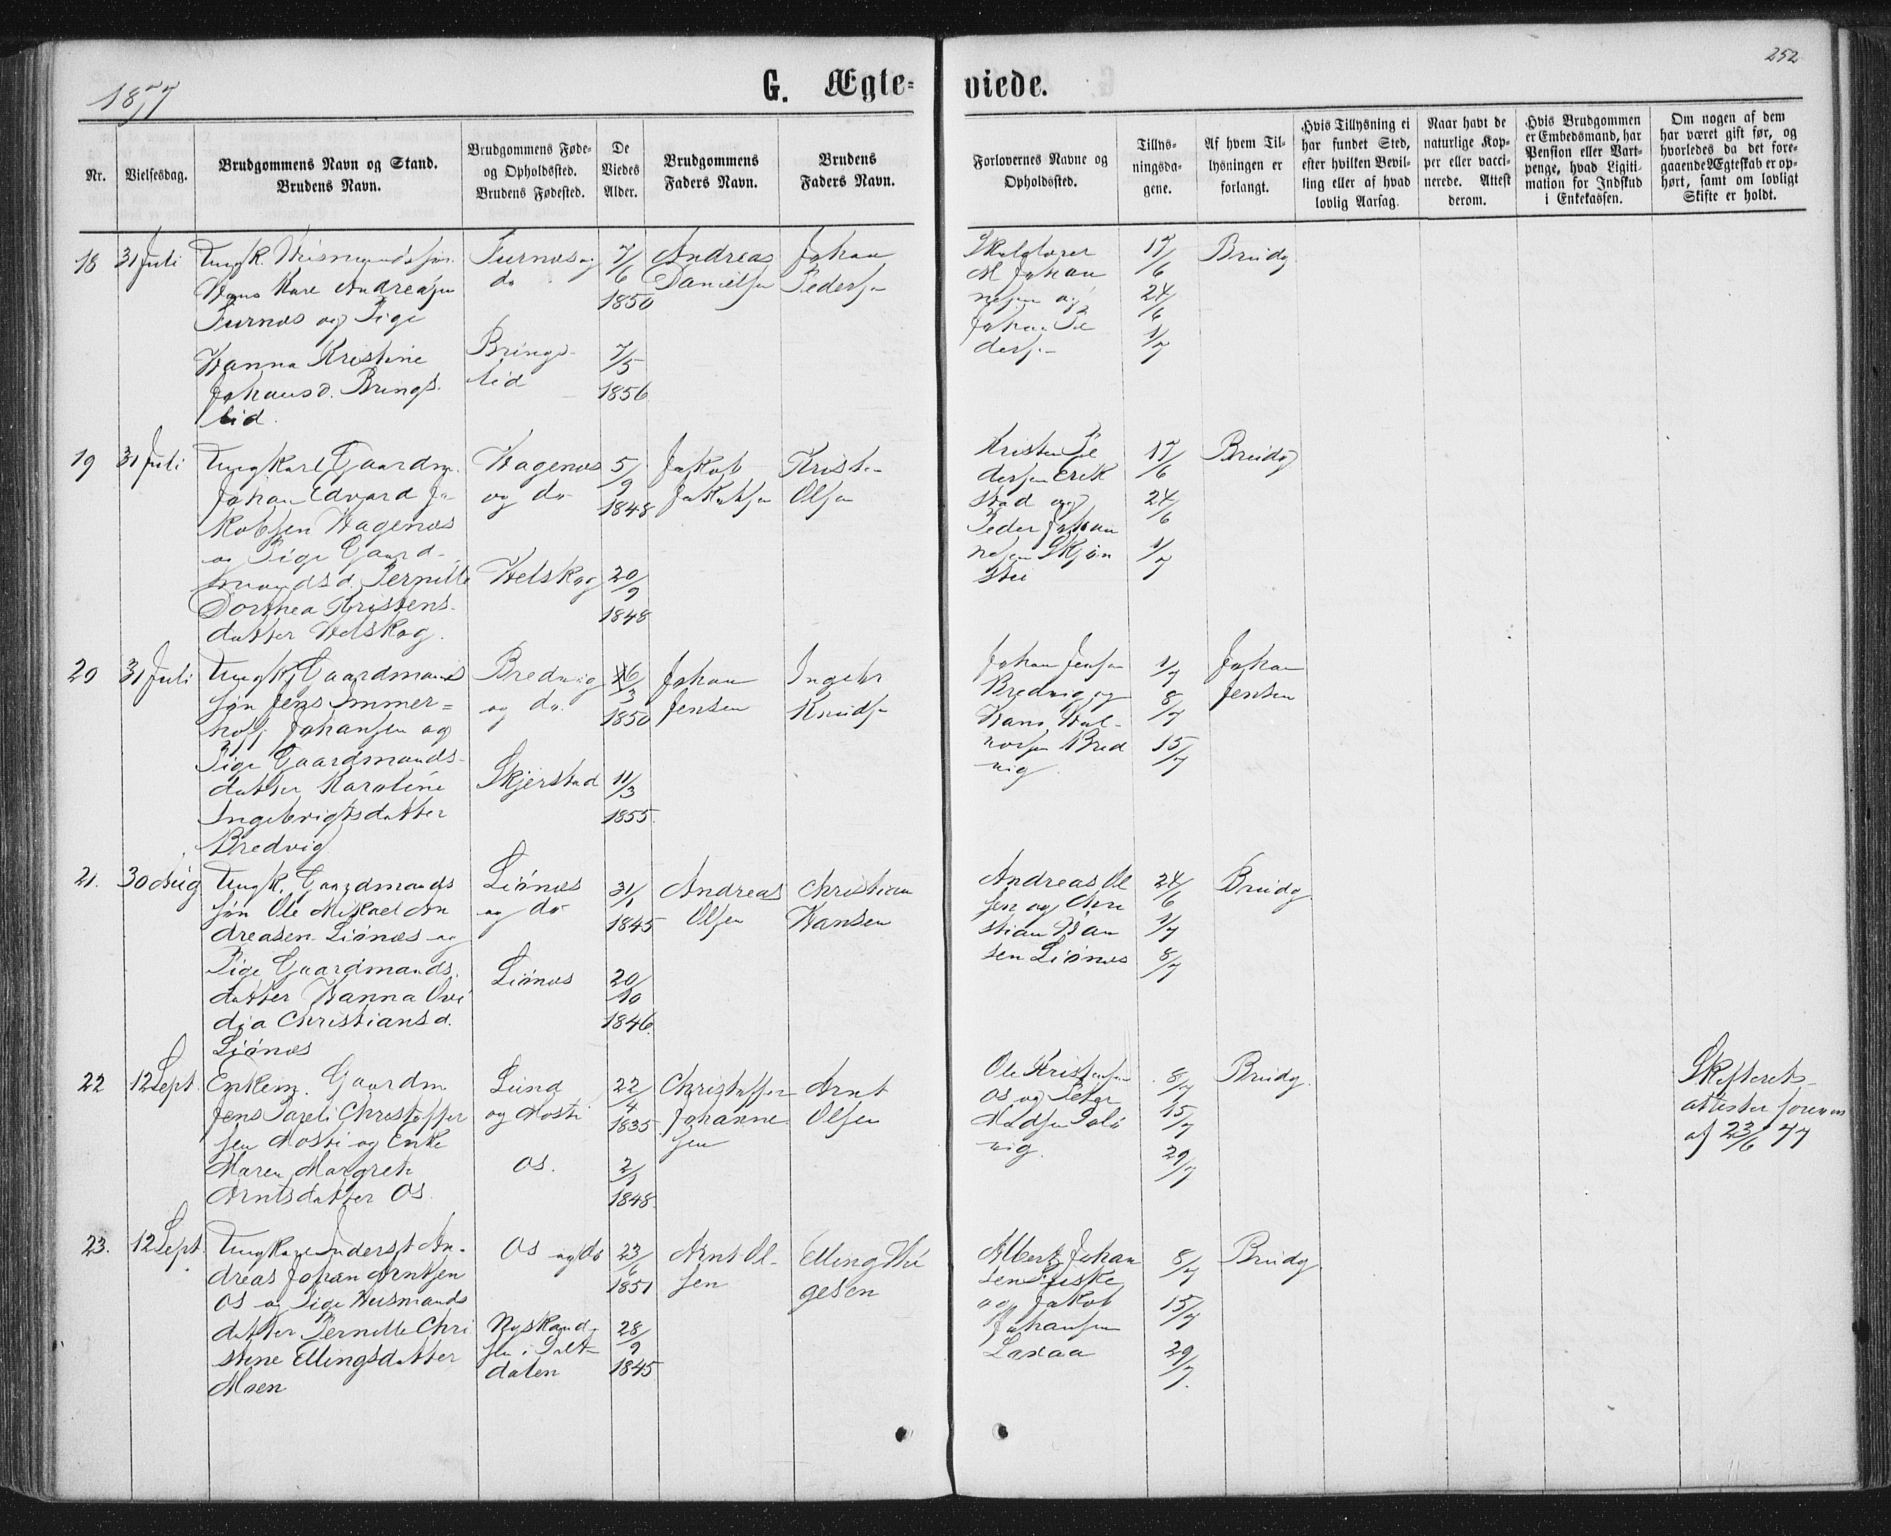 252
1877
G. Ægte= viede.
Nr.
Vielsesdag.
Brudgommens Navn og Stand.
Brudens Navn.
Brudgommens Føde-
og Opholdssted.
Brudens Fødested.
De
Viedes
Alder.
Brudgommens
Faders Navn.
Brudens
Faders Navn.
Forlovernes Navne og
Opholdssted.
Tillys-
ningsda-
gene.
Af hvem Til-
lysningen er
forlangt.
Hvis Tillysning ei
har fundet Sted,
efter hvilken Bevil-
ling eller af hvad
lovlig Aarsag.
Naar havt de
naturlige Kop-
per eller vacci-
nerede. Attest
derom.
Hvis Brudgommen
er Embedsmand, har
Pension eller Vart-
penge, hvad Ligiti-
mation for Indskud
i Enkekassen.
Om nogen af dem
har været gift før, og
hvorledes da det fore-
gaaende Ægteskab er op-
hørt, samt om lovligt
Skifte er holdt.
18
31 Juli
Ungk. Husmandssøn
Hans Karl Andreasen
Furnæs og Pige
Hanna Kristine
Johansd. Brings
lid.
Furnæs og
do
Brings-
lid
7/6
1850
7/5
1856
Andreas
Danielsen
Johan
Pedersen
Skolelærer
M Johan
nesen og
Johan Pe
dersen
17/6
24/6
1/7
Brudg
19
31 Juli
Ungkarl Gaardm.
Johan Edvard Ja
kobsen Hagenæs
og Pige Gaard-
mandsd. Pernille
Dorthea Kristens-
datter Helskog.
Hagenæs
og do
Helskog
5/9
1848
20/9
1848
Jakob
Jakobsen
Kristen
Olsen
Kristen Pe
dersen Erik
stad og
Peder Johan
nesen Skjøn
stu
17/6
24/6
1/7
Brudg
20
31 Juli
Ungk. Gaardmands
søn Jens Immer=
Johansen og
Pige Gaardmands-
datter Karoline
Ingebrigtsdatter
Bredvig
Bredvig
og do.
Skjerstad
16/3
1850
11/3
1855
Johan
Jensen
Ingebr
Knudsen
Johan Jensen
Bredvig og
Hans Hal-
vorsen Bred
vig
1/7
8/7
15/7
Johan
Jensen
21.
30 Aug
Ungk. Gaardmands
søn Ole Mikael An
dreasen Liønæs og
Pige Gaardmands.
datter Hanna Ovi
dia Christiansd.
Liønæs
Liønæs
og do
Liønæs
31/1
1845
20/10
1846.
Andreas
Olsen
Christian
Hansen
Andreas Ol
sen og Chri
stian Han
sen Liønæs
24/6
1/7
8/7
Brudg
22
12 Sept.
Enkem. Gaardm
Jens Christoffer
sen Mosti og Enke
Maren Margrete
Arntsdatter Os.
Lund
og Mosti
Os.
22/4
1835
1848
Christoffer
Johanne
sen
Arnt
Olsen
Ole Kristensen
Os og Peter
Madsen
vig.
8/7
15/7
29/7
Brudg.
Skifterets-
attester
af 23/6 77
23.
12 Sept.
Ungkarl Inderst An-
dreas Johan Arntsen
Os og Pige Husmands
datter Pernille Chri
stine Ellingsdatter
Moen
Os og do
i Salt
dalen
23/6
1851
28/9
1845
Arnt Ol-
sen
Elling Thi
gesen
Albert Johan
sen
og Jakob
Johansen
Laxaa
8/7
15/7
29/7.
Brudg